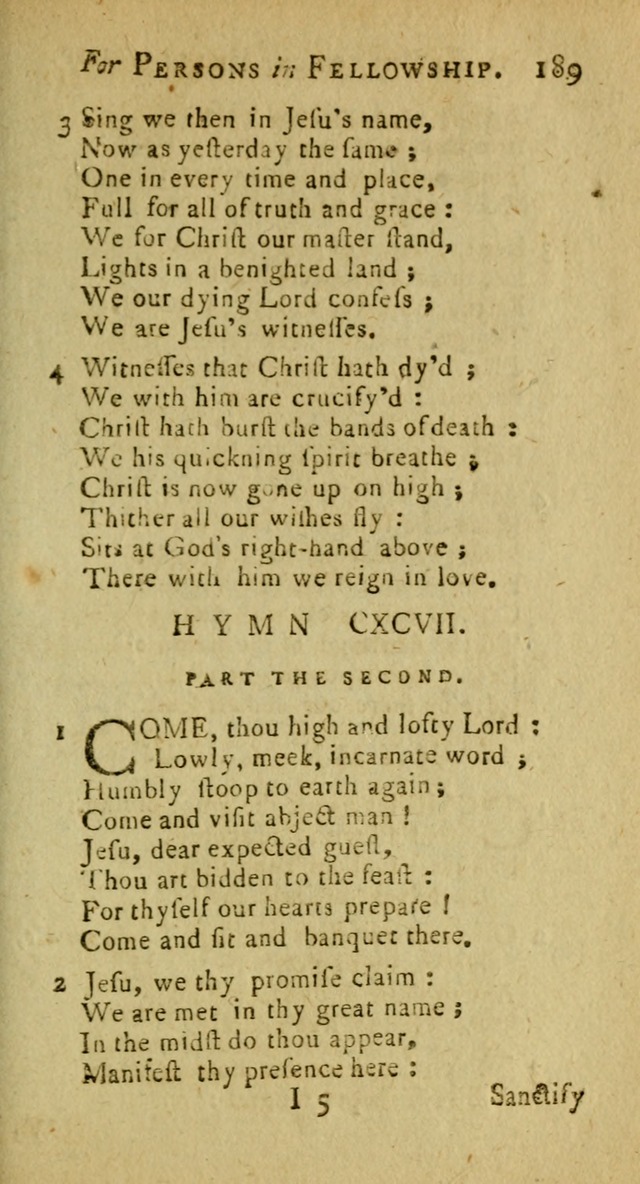 For PERSONS in FELLOWSHIP. 189
3 Sing we then in Jeſu's name,
Now as yeſterday the ſame ;
One in every time and place,
Full for all of truth and grace :
We for Chriſt our maſter ſtand,
Lights in a benighted land ;
We our dying Lord confeſs ;
We are Jeſu's witneſſes.
4 Witneſſes that Chriſt hath dy'd ;
We with him are crucify'd :
Chriſt hath burſt the bands of death :
We his quickning ſpirit breathe ;
Chriſt is now gone up on high ;
Thither all our wiſhes fly :
Sits at God's right-hand above ;
There with him we reign in love.
HYMN CXCVII.
PART THE SECOND.
1 COME, thou high and lofty Lord :
Lowly, meek, incarnate word ;
Humbly ſtoop to earth again ;
Come and viſit abject man !
Jeſu, dear expected gueſt,
Thou art bidden to the feaſt :
For thyſelf our hearts prepare !
Come and ſit and banquet there.
2 Jeſu, we thy promiſe claim :
We are met in thy great name ;
In the midſt do thou appear,
Manifeſt thy preſence here :
I 5 Sanctify